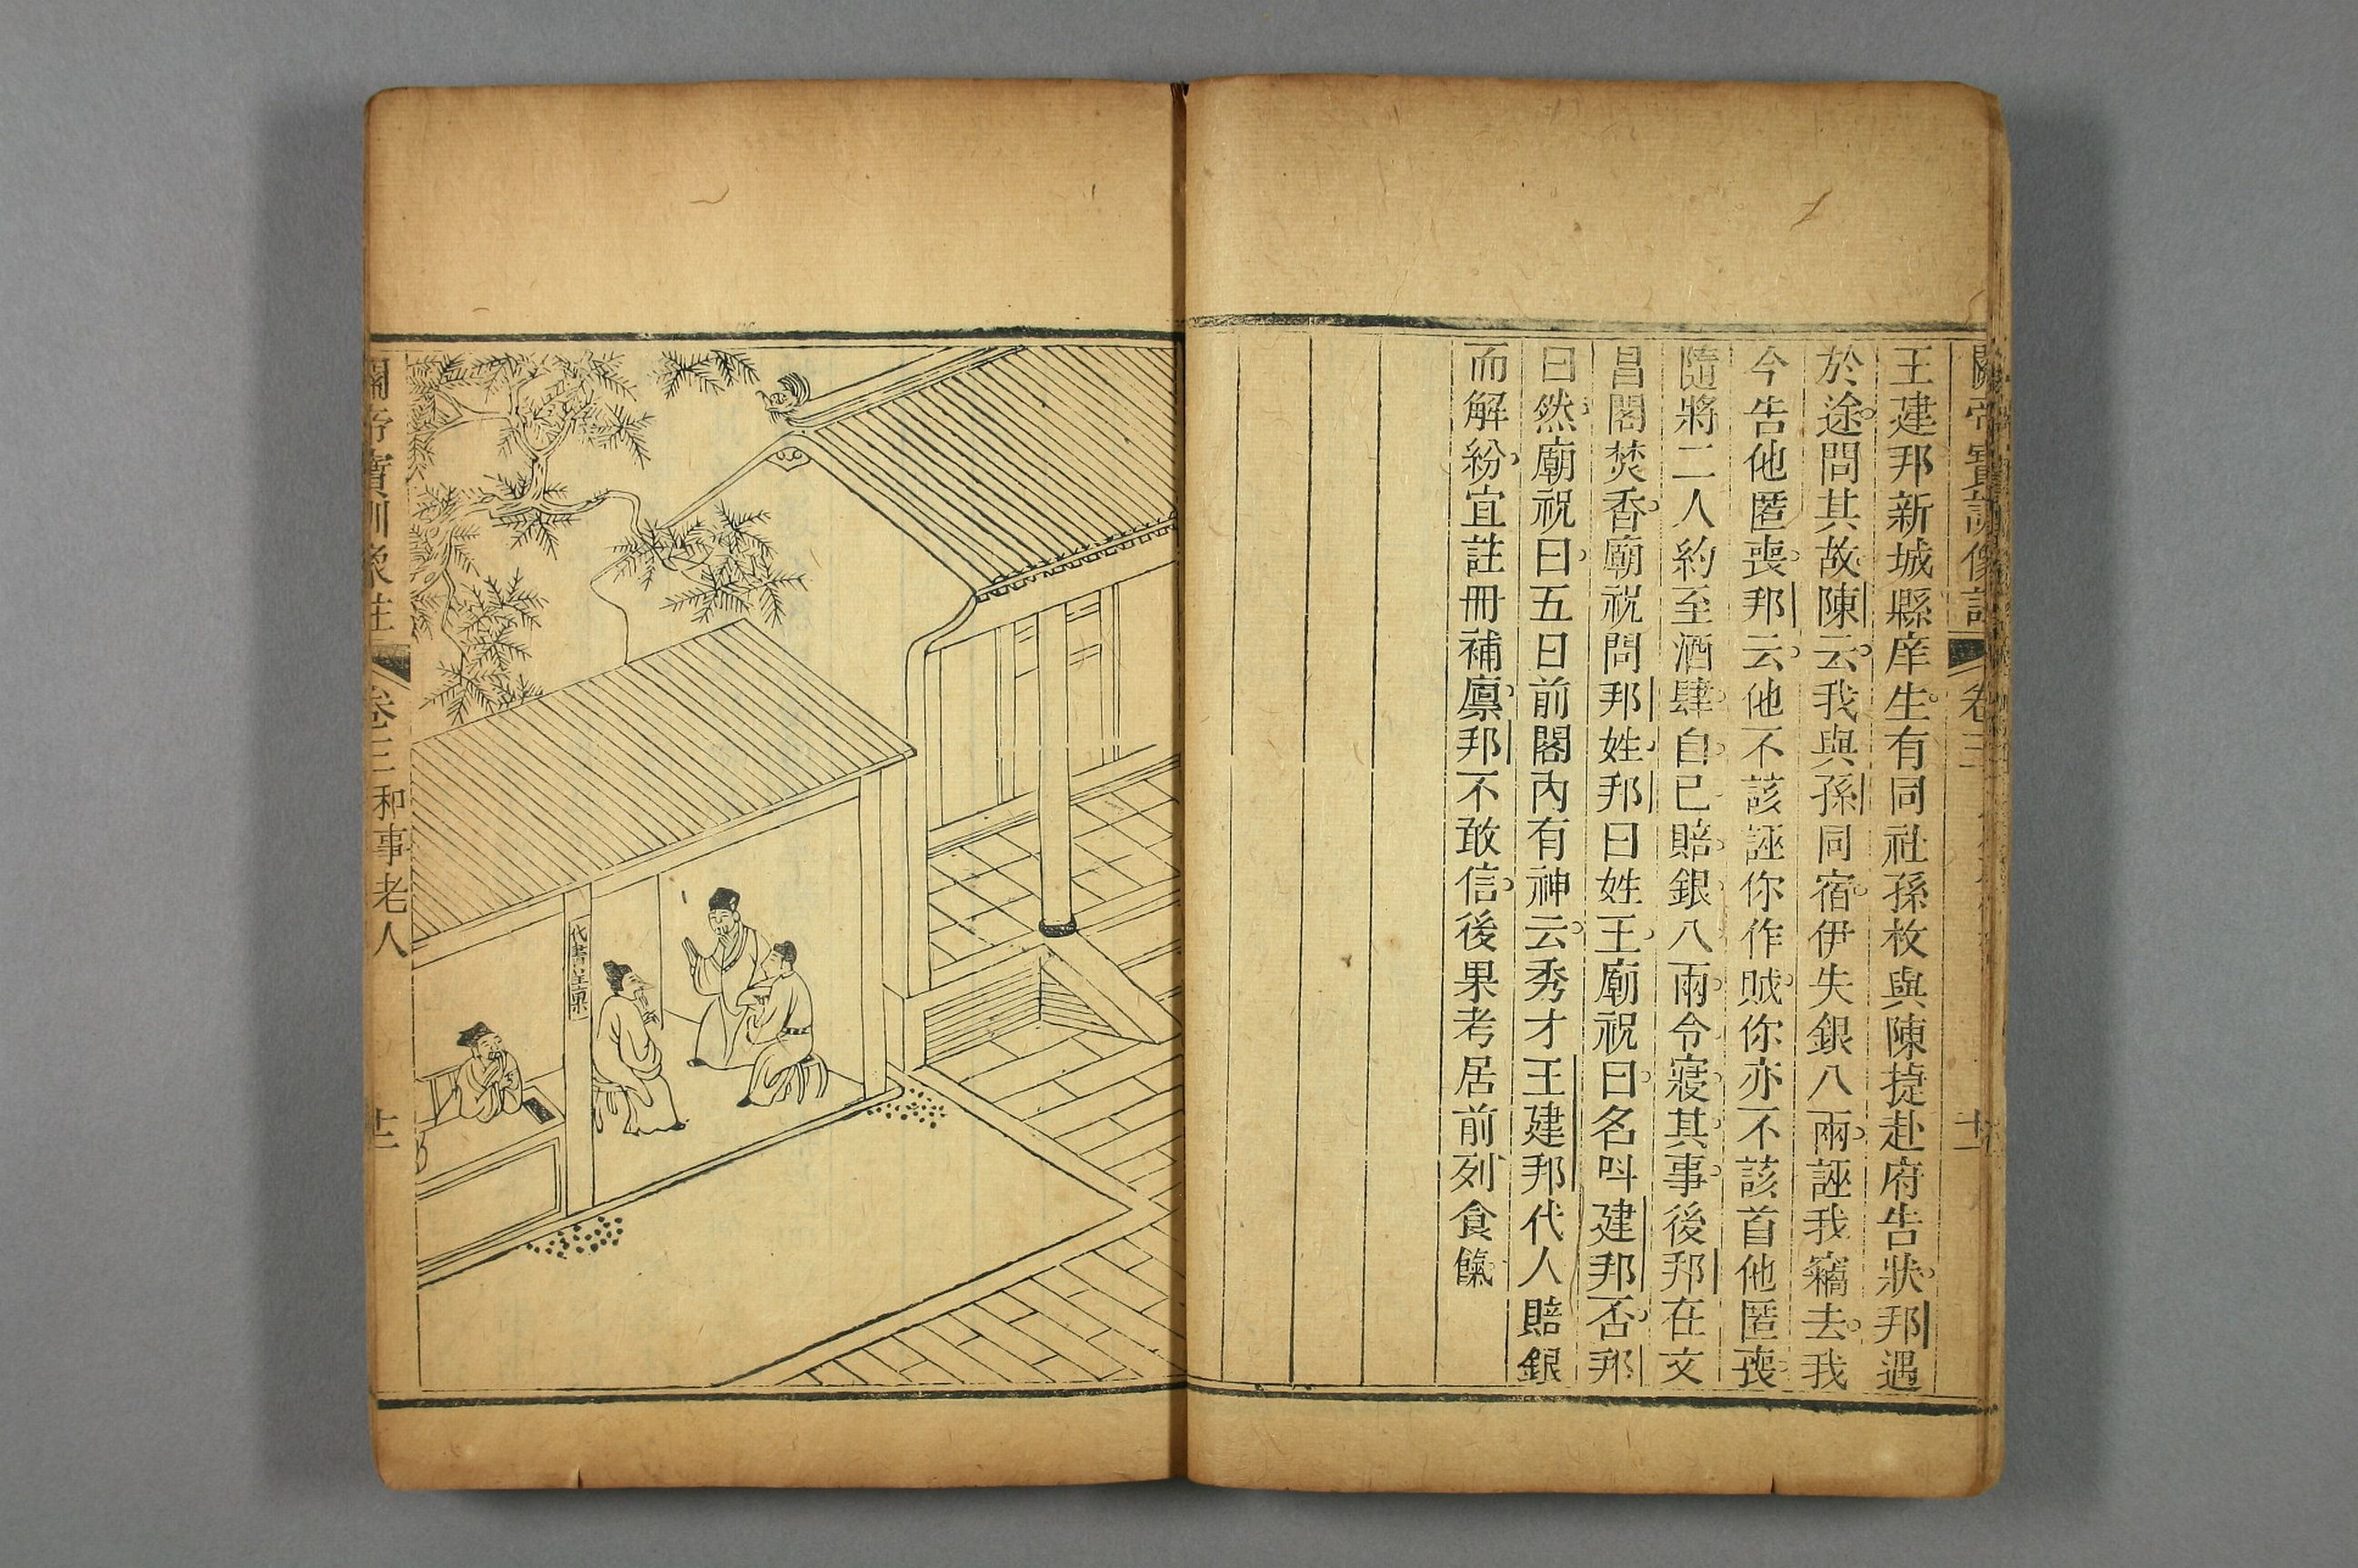 關帝寶訓像註 卷三
王建邦新城縣庠生有同社孫枚與陳㨗赴府告狀邦遇
於途問其故陳云我與孫同宿伊失銀八兩誣我竊去我
今告他匿喪邦云他不該誣你作賊你亦不該首他匿喪
隨將二人約至酒肆自已賠銀八兩令寢其事後邦在文
昌閣焚香廟祝問邦姓邦曰姓王廟祝曰名呌建邦否邦
曰然廟祝曰五日前閣內有神云秀才王建邦代人賠銀
而解紛宜註冊補廪邦不敢信後果考居前列食餼
代書
關帝寶訓像註 卷三 和事老人